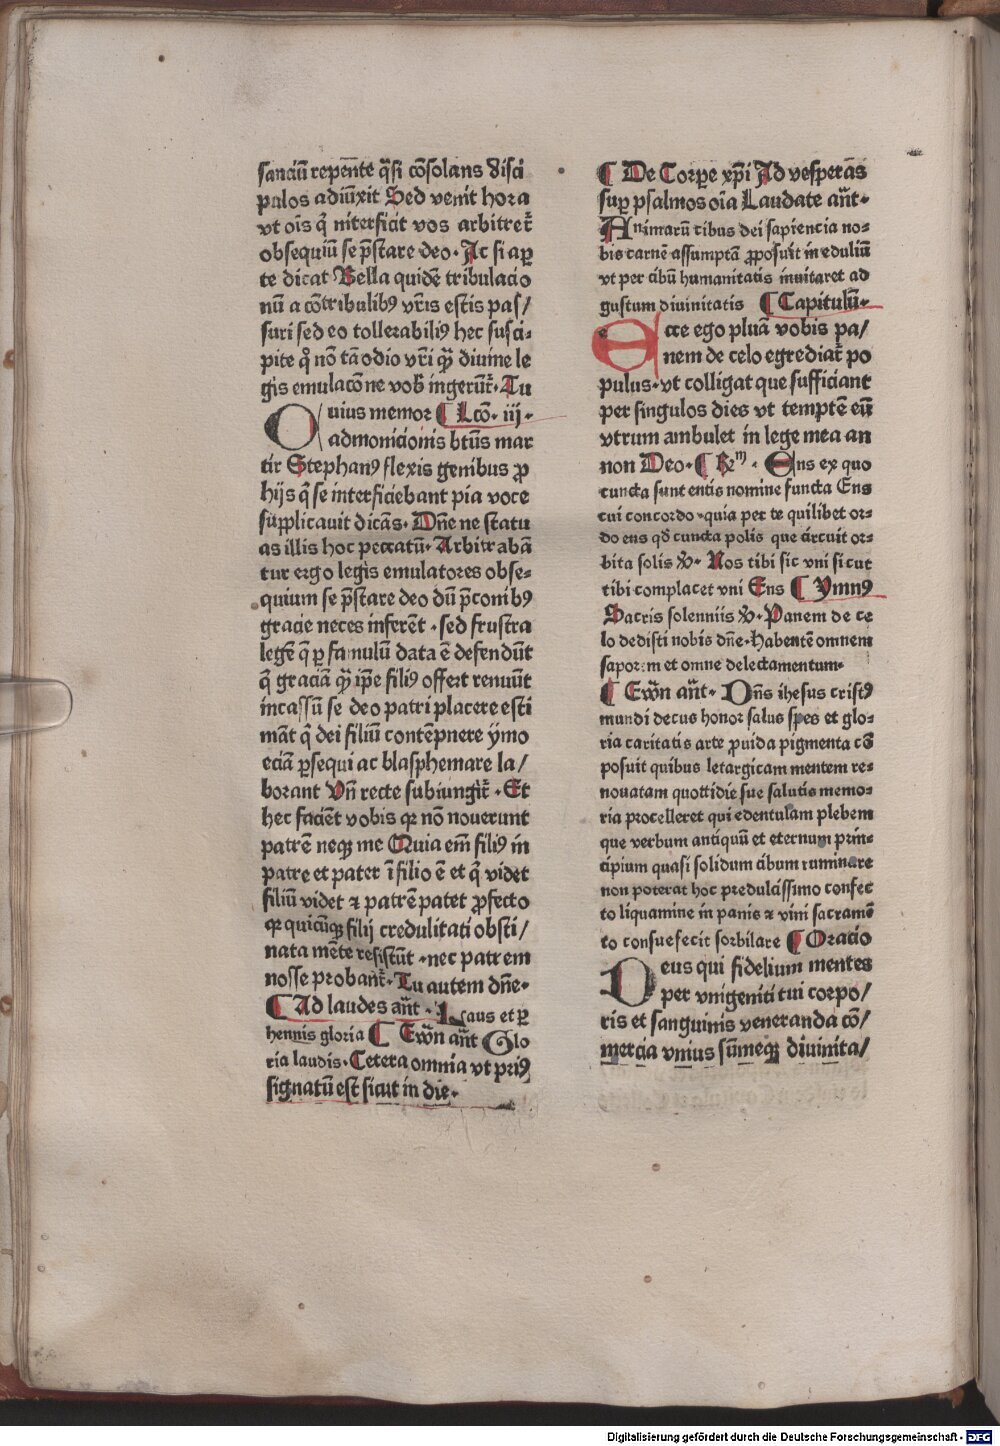 sanciū repente q̄si cōsolans disci
pulos adiūxit Sed venit hora
vt oīs q̄ interficit vos arbitret̄
obsequiū se p̄stare deo· Ac si aꝑ
te dicat Bella quidē tribulacio
nū a cōtribulibꝰ vr̄is estis pas/
suri sed eo tollerabiliꝰ hec susci-
pite q̄ nō tā odio vr̄i qꝫ diuine le
gis emulacōne vob̄ ingerūt̄· Tu
Ouius memor ¶ Lcō· iij·
admonicionis btūs mar
tir Stephanꝰ flexis genibus ꝓ
hijs q̄ se interficiebant pia voce
supplicauit dicās· Dn̄e ne statu
as illis hoc peccatū· Arbitrabā
tur ergo legis emulatores obse-
quium se p̄stare deo dū p̄conibꝰ
gracie neces inferēt · sed frustra
legē q̄ ꝑ famulū data ē defendūt
q̄ graciā qꝫ ip̄e filiꝰ offert renuūt
incassū se deo patri placere esti
māt q̄ dei filiū contēpnere ymo
eciā ꝑsequi ac blasphemare la/
borant Vn̄ recte subiungit̄ · Et
hec faciēt vobis qꝛ nō nouerunt
patrē neqꝫ me Quia em̄ filiꝰ in
patre et pater ī filio ē et q̄ videt
filiū videt ⁊ patrē patet ꝓfecto
qꝛ quicūqꝫ filij credulitati obsti/
nata mēte resistūt ·nec patrem
nosse probant̄· Tu autem dn̄e·
¶ Ad laudes an̄t · Laus et ꝑ
hennis gloria ¶ Ewn̄ an̄t Glo
ria laudis· Cetera omnia vt priꝰ
signatū est sicut in die·
¶ De Corꝑe xp̄i Ad vesperās
suꝑ psalmos oīa Laudate an̄t·
Animarū cibus dei sapiencia no-
bis carnē assumptā ꝓposuit in eduliū
vt per cibū humanitatis inuitaret ad
gustum diuinitatis ¶ Capitulū·
Ecce ego pluā vobis pa/
nem de celo egrediat̄ po
pulus·vt colligat que sufficiant
per singulos dies vt temptē eū
vtrum ambulet in lege mea an
non Deo· ¶ Rm̄ · Ens ex quo
cuncta sunt entis nomine functa Ens
cui concordo ·quia per te quilibet or-
do ens qd̄ cuncta polis que circuit or-
bita solis v̓· Nos tibi sic vni sicut
tibi complacet vni Ens ¶ Ymnꝰ
Sacris solenniis v̓· Panem de ce
lo dedisti nobis dn̄e· Habentē omnem
saporem et omne delectamentum·
¶ Ewn̄ an̄t· Dn̄s ihesus cristꝰ
mundi decus honor salus spes et glo-
ria caritatis arte ꝓuida pigmenta cō
posuit quibus letargicam mentem re-
nouatam quottidie sue salutis memo-
ria procelleret qui edentulam plebem
que verbum antiquū et eternum prin-
cipium quasi solidum cibum ruminare
non poterat hoc predulcissimo confec
to liquamine in panis ⁊ vini sacramē
to consuefecit sorbilare ¶ Oracio
Deus qui fidelium mentes
per vnigeniti tui corpo/
ris et sanguinis veneranda cō/
mercia vnius sūmeqꝫ diuinita/
Digitalisierung gefördert durch die Deutsche Forschungsgemeinschaft - DFG